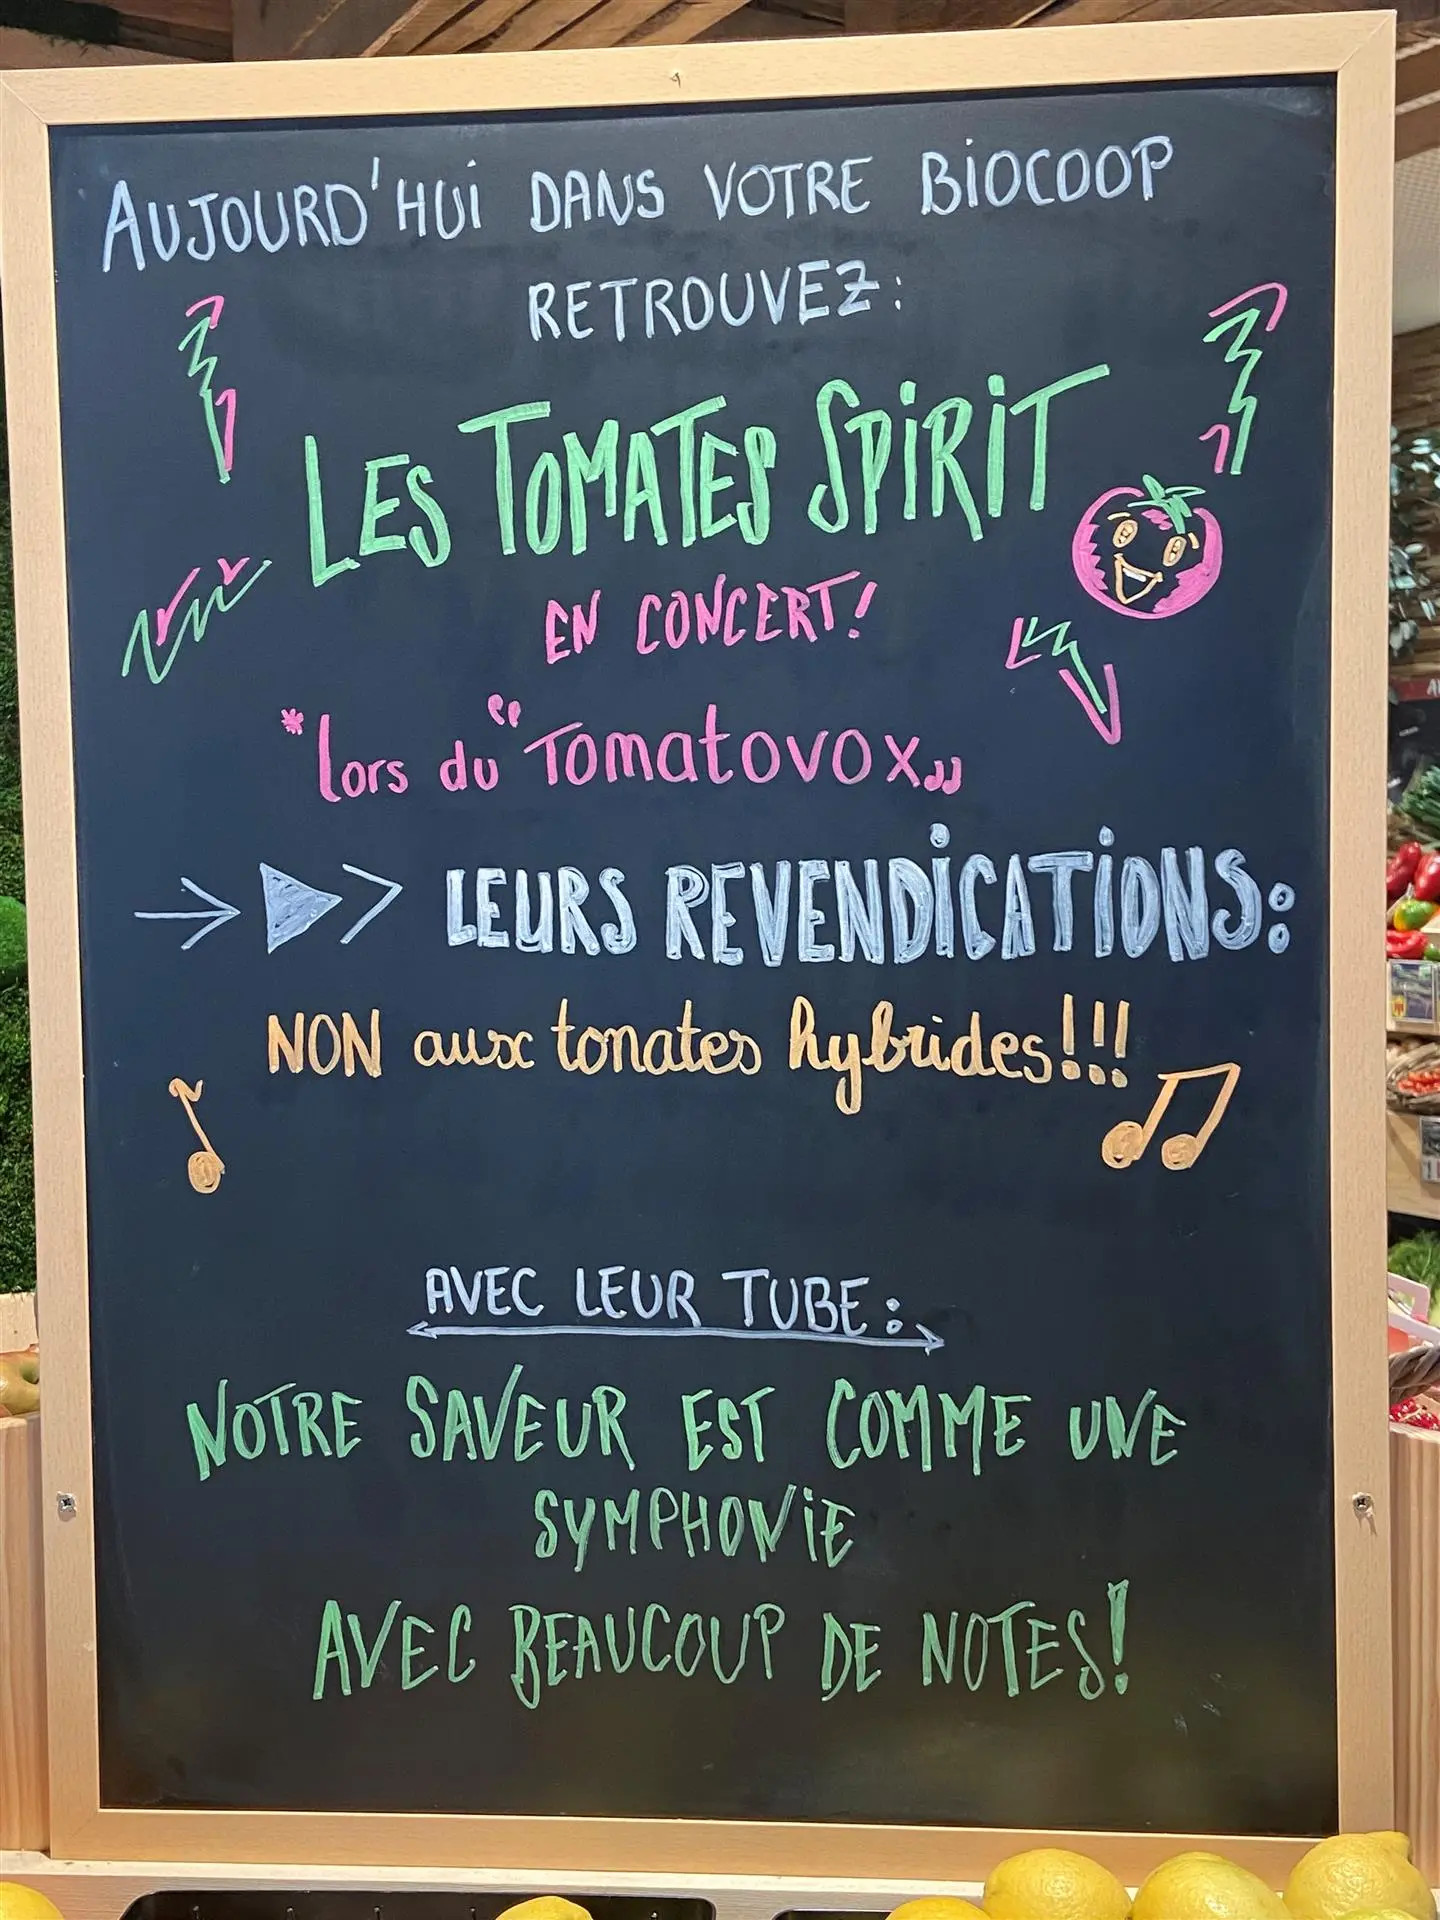 AUJOURD'HUI DANS VOTRE BIOCOOP
RETROUVEZ:
LES TOMATES SPIRIT
EN CONCERT!
*lors du "Tomatovox„
LEURS REVENDICATIONS:
NON aux tonates hybrides!!!
AVEC LEUR TUBE:
NOTRE SAVEUR EST COMME UNE
SYMPHONIE
AVEC BEAUCOUP DE NOTES!